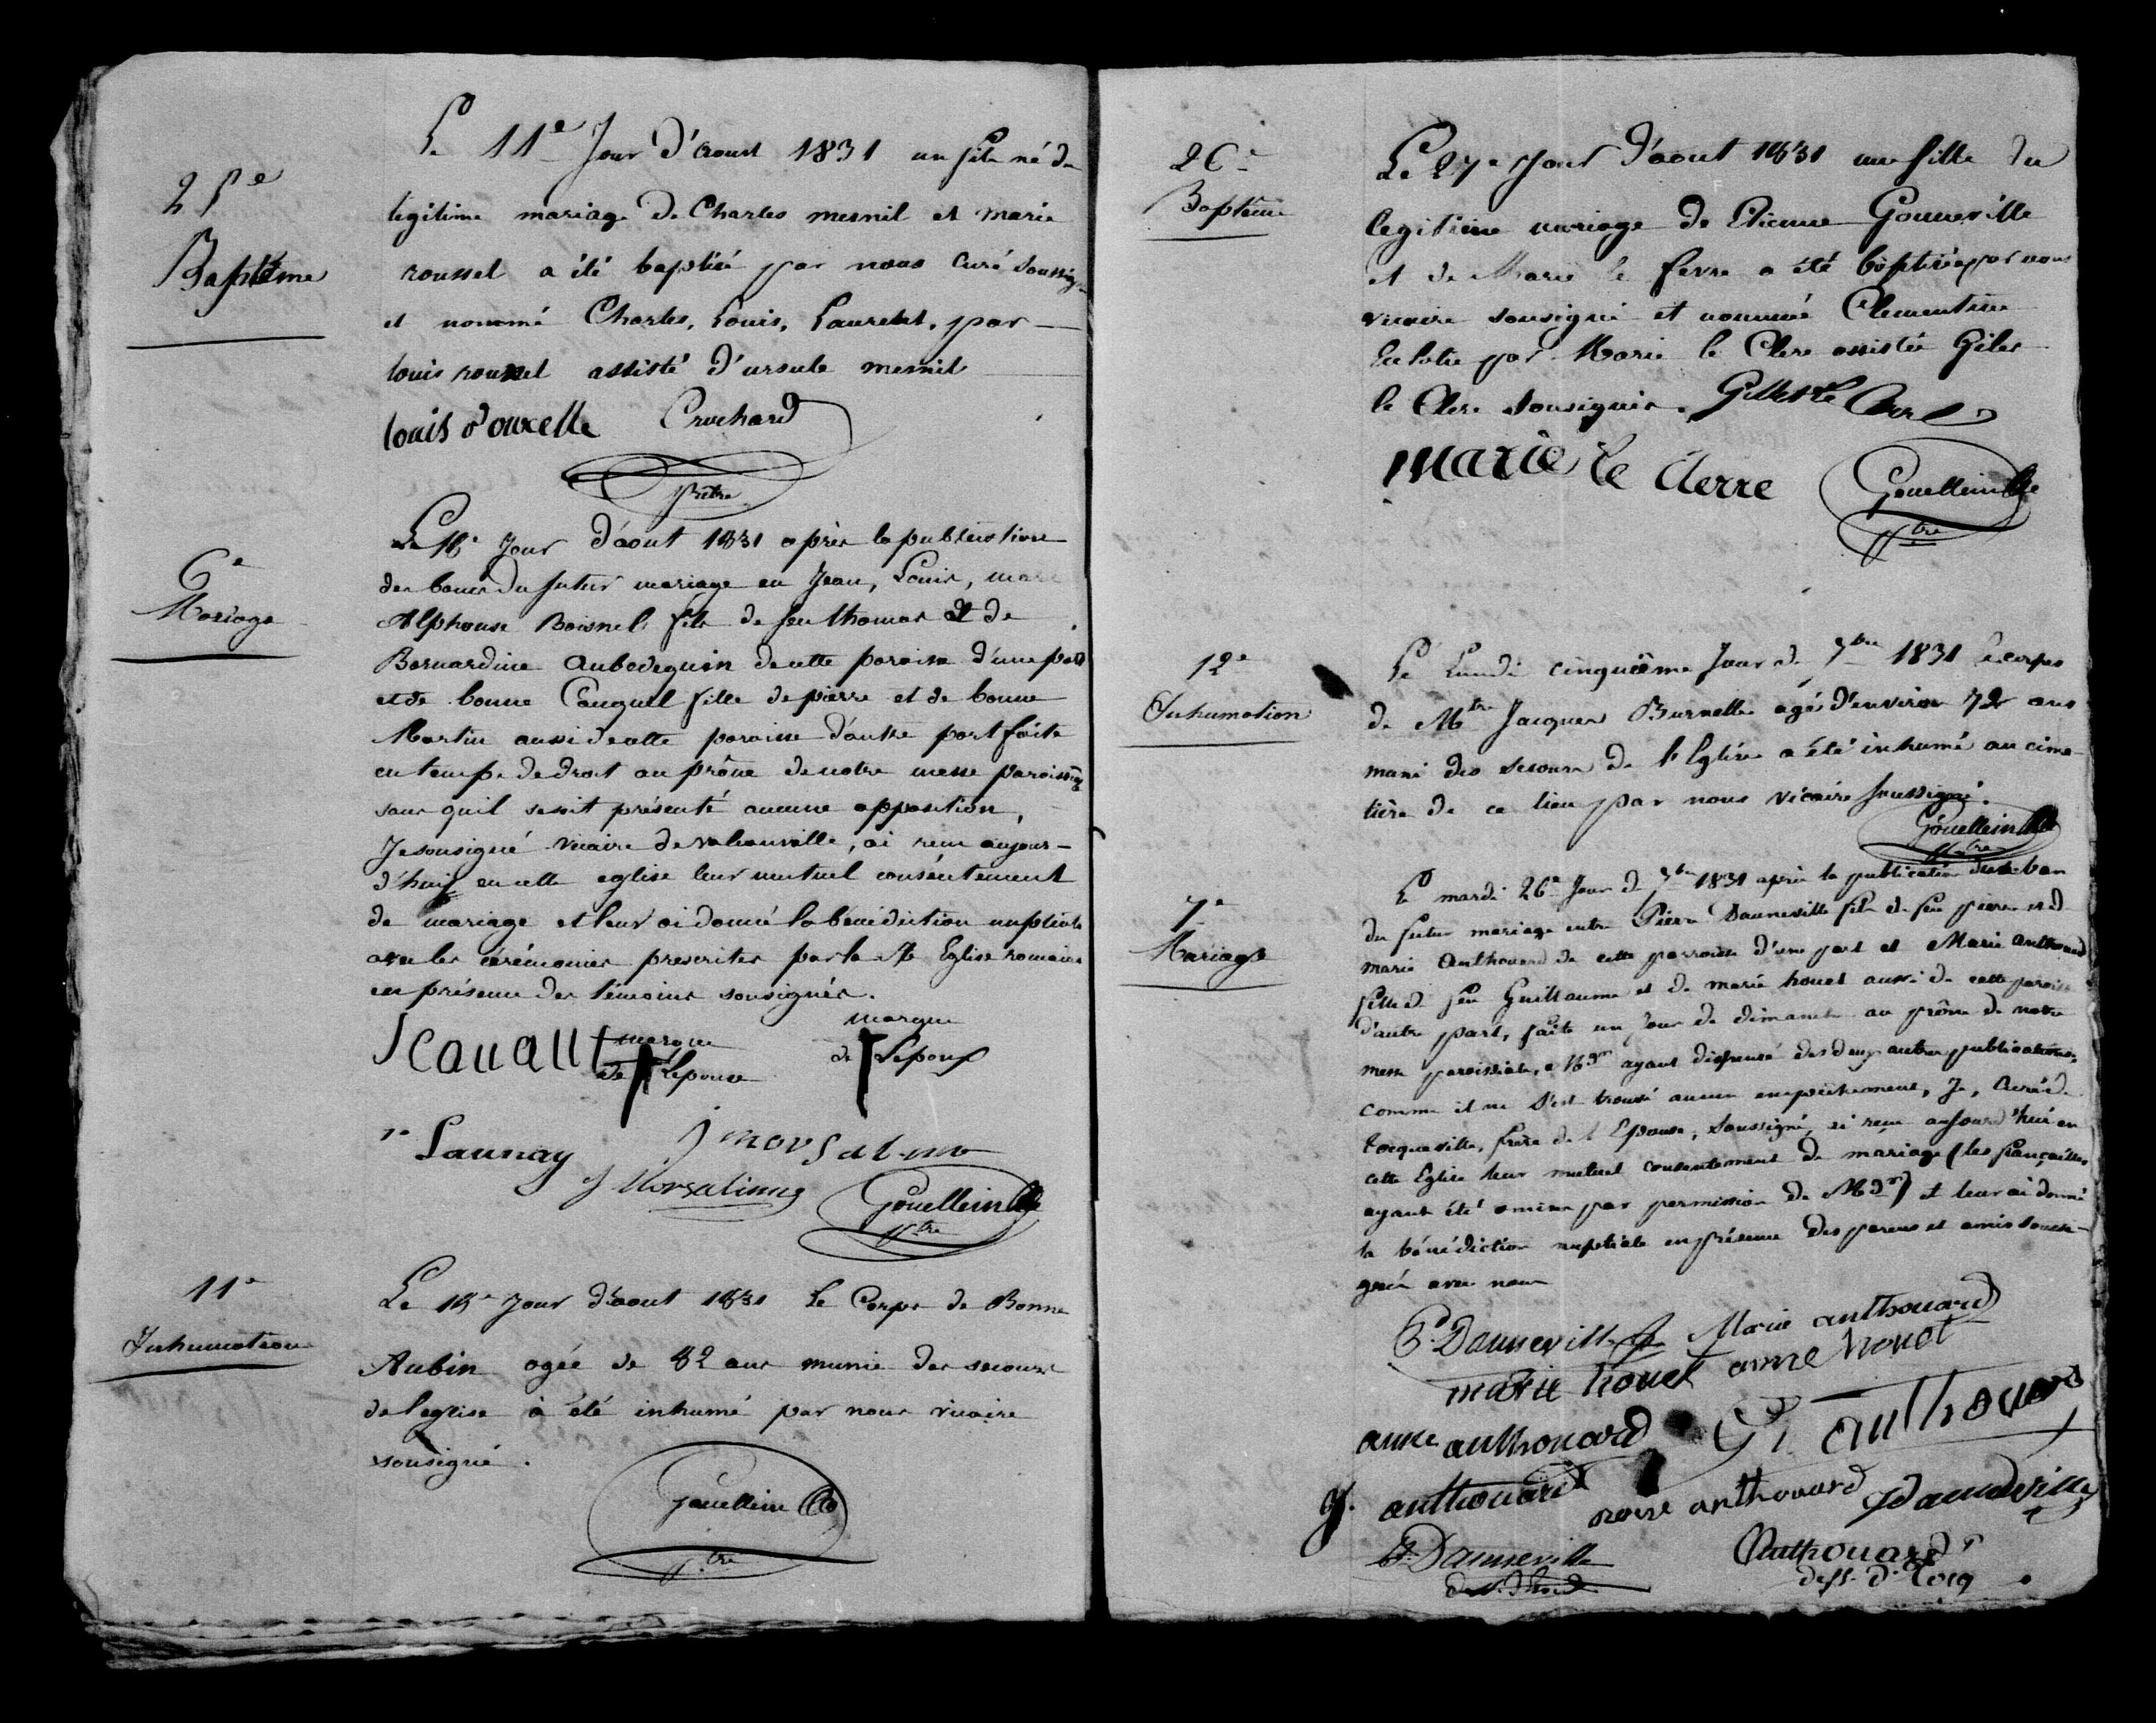 25e
Baptême
Le 11e Jour d'aoust 1831 un fils né du
legitime mariage de Charles mesnil et marie
roussel a été baptisé par nous Curé soussig
et nommé Charles, Louis, Laurent, par
louis roussel assisté d'ursule mesnil
louis rouxelle Cruchard
prêtre
6e
Mariage
Le 16e Jour d'aout 1831 après la publication
des bancs du futur mariage en Jean, Louis, marc
Alphonse Boisnel fils de feu thomas et de
Bernardine de cette paroisse d'une part
et de bonne Cauquel fille de pierre et de bonne
Martin aussi de cette paroisse d'autre part faite
en temps de droit au prône de notre messe paroissiale
sans quil se soit présenté aucune opposition,
Je sousigné vicaire de valcanville, ai reçu aujour-
d'huy en cette eglise leur mutuel consentement
de mariage et leur ai donné la bénédiction nuptiale
avec les cérémonies prescrites par la Ste Eglise romaine
en présence des témoins sousignés.
marque de L'épouse
marque de L'époux
Launay
J Morsalinne
Gouelleinlle
ptre
11e
Inhumation
Le 18e Jour d'aout 1831 Le Corps de Bonne
Aubin agée de 82 ans munie des secours
de l'eglise a été inhumé par nous vicaire
sousigné.
Gouelleinlle
ptre
26e
Baptême
Le 27e Jour d'aout 1831 une fille du
legitime mariage de Etienne Gonneville
et de Marie le fevre a été baptisée par nous
vicaire sousigné et nommé Clementine
par Marie le Clerc assistée Giles
le Clerc sousignés. Gilles le Clerc
marie le clerre
Gouelleinlle
ptre
12e
Inhumation
Le Lundi cinquième Jour de 7bre 1831 le corps
de Mtre Jacques Burnelle agé d'environ 72 ans
muni des secours de l'Eglise a été inhumé au cime-
tière de ce lieu par nous vicaire soussigné.
Gouelleinlle
ptre
7e
Mariage
Le mardi 26e Jour de 7bre 1831 après la publication du ban
du futur mariage entre Pierre Danneville fils de feu pierre et de
marie Anthouard de cette parroisse d'une part et Marie Anthouard
fille de feu Guillaume et de marie houet aussi de cette paroisse
d'autre part, faite un Jour de dimanche au prône de notre
messe paroissiale, Mgr ayant dispensé des deux autres publications,
comme il ne s'est trouvé aucun empêchement, Je, Curé de
tocqueville, frère de l'Epouse, soussigné, ai reçu aujourd'hui en
cette Eglise leur mutuel consentement de mariage (les fiançailles
ayant été omises par permission de Mgr) et leur ai donné
la bénédiction nuptiale en présence des parens et amis soussi-
gnés avec nous
P. Danneville Marie anthouard
marie houet anne houet
anne anthouard G. anthouard
g. anthouard rose anthouard Danneville
Danneville
Anthouard
dess. d. Tocq